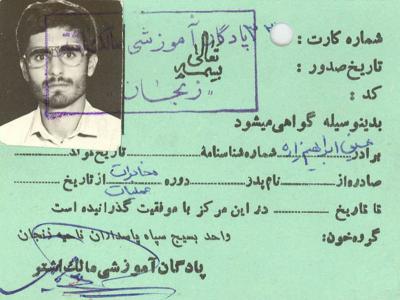 بسمه تعالی
پادگان آموزشی مالک اشتر
زنجان
شماره کارت : ۲۳
تاریخ صدور :
کد :
بدینوسیله گواهی میشود
برادر ابراهیم زاده شماره شناسنامه تاریخ تولد
صادره از نام پدر دوره مخابرات عملیات از تاریخ
تا تاریخ در این مرکز با موفقیت گذرانیده است
گروه خون: واحد بسیج سپاه پاسداران ناحیه زنجان
پادگان آموزشی مالک اشتر